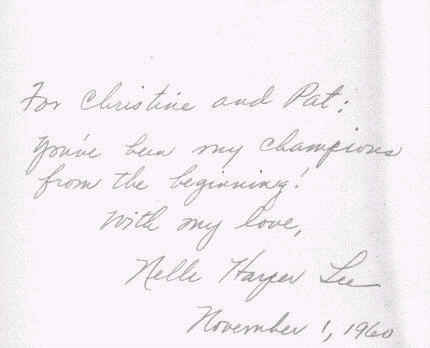 For Christine and Pat:
You've been my champions
from the beginning!
With my love,
Nelle Harper Lee
November 1, 1960